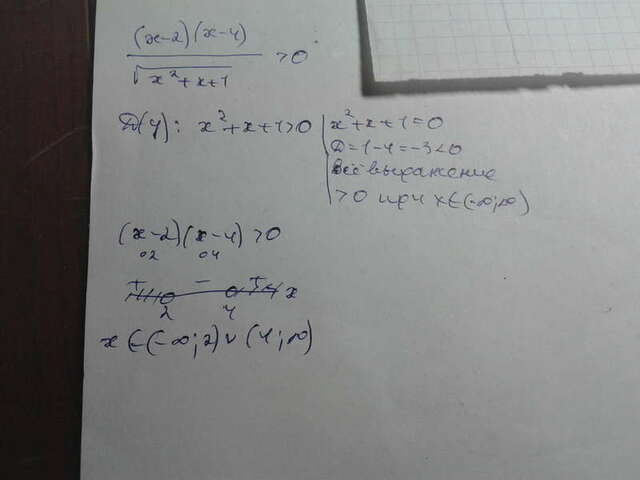 (x-2)(x-4)
√x²+x+1 >0
D(y): x²+x+1>0
x²+x+1=0
D=1-4=-3<0
всё выражение
>0 при x∈(-∞;∞)
(x-2)(x-4)>0
02 04
+ - + x
2 4
x∈(-∞;2)∪(4;∞)